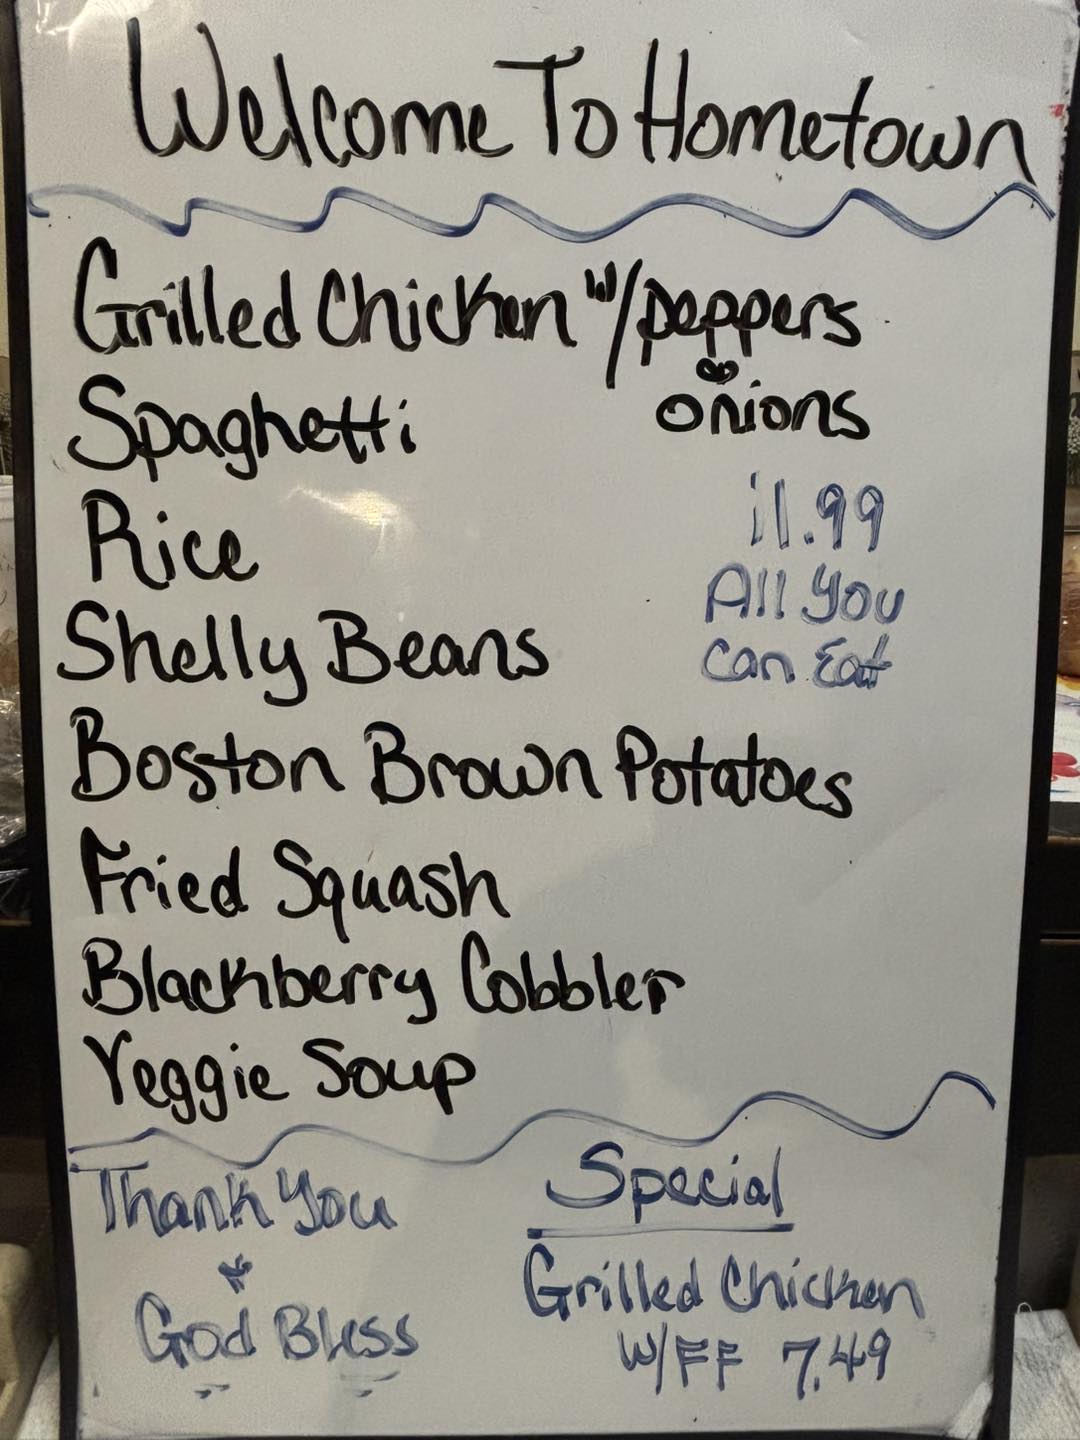 Welcome To Hometown
Grilled Chicken w/peppers
& onions
Spaghetti
Rice
11.99
All You
Can Eat
Shelly Beans
Boston Brown Potatoes
Fried Squash
Blackberry Cobbler
Veggie Soup
Thank You
&
God Bless
Special
Grilled Chicken
W/FF 7.49